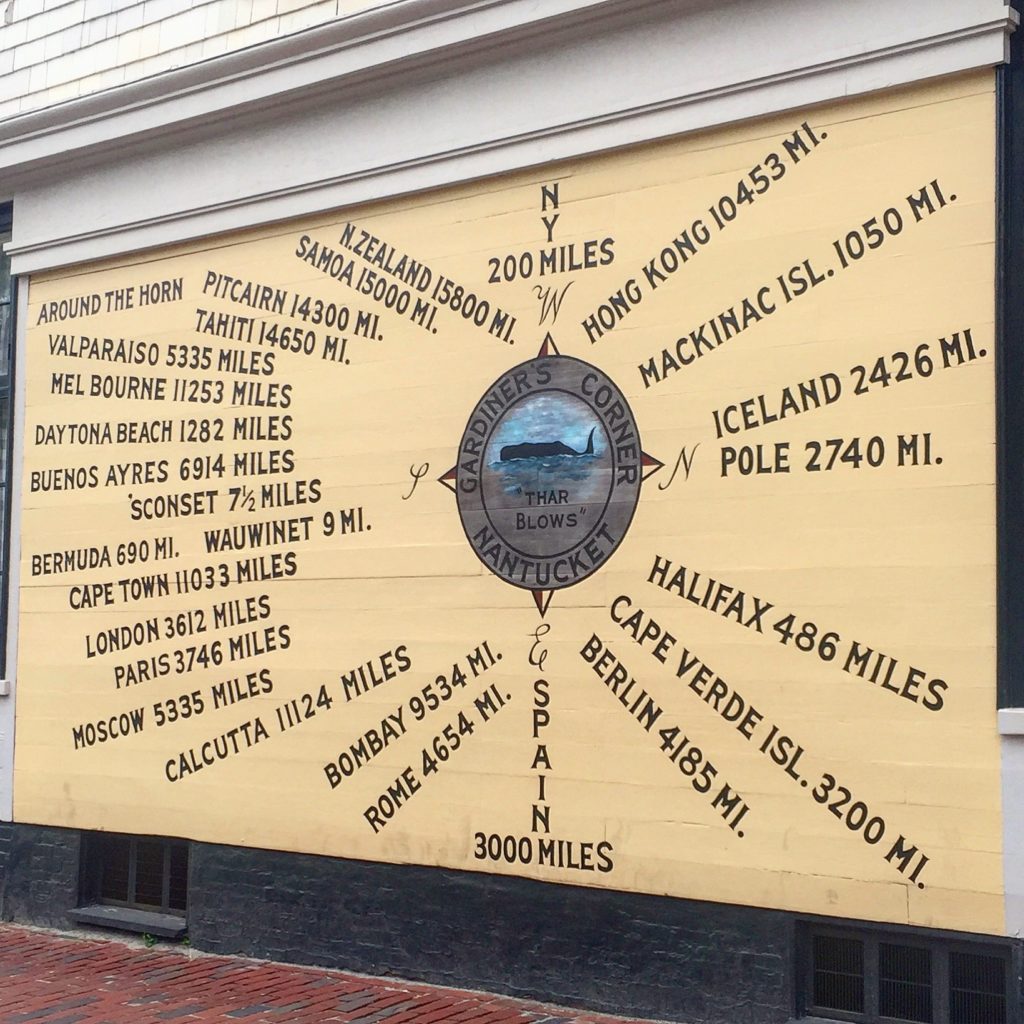 N
Y
200 MILES
W
HONG KONG 10453 MI.
MACKINAC ISL. 1050 MI.
ICELAND 2426 MI.
N
POLE 2740 MI.
HALIFAX 486 MILES
CAPE VERDE ISL. 3200 MI.
BERLIN 4185 MI.
E
S
P
A
I
N
3000 MILES
ROME 4654 MI.
BOMBAY 9534 MI.
CALCUTTA 11124 MILES
MOSCOW 5335 MILES
PARIS 3746 MILES
LONDON 3612 MILES
CAPE TOWN 11033 MILES
BERMUDA 690 MI. WAUWINET 9 MI.
'SCONSET 7½ MILES
BUENOS AYRES 6914 MILES
DAYTONA BEACH 1282 MILES
MEL BOURNE 11253 MILES
VALPARAISO 5335 MILES
AROUND THE HORN PITCAIRN 14300 MI.
TAHITI 14650 MI.
SAMOA 15000 MI.
N.ZEALAND 15800 MI.
S
GARDINER'S CORNER
"THAR
BLOWS"
NANTUCKET